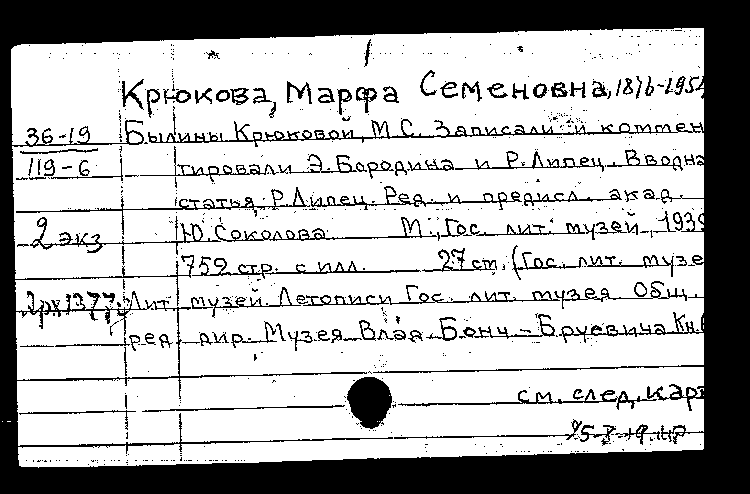 Крюкова, Марфа Семеновна, 1876-1954
36-19 Былины Крюковой, М.С. Записали и коммен
119-6 тировали Э.Бородина и Р.Липец. Вводна
статья Р.Липец. Ред. и предисл. акад.
2 экз Ю.Соколова М., Гос. лит. музей, 1939
752 стр. с илл. 27 ст. (Гос. лит. музе
Лит. музей. Летописи Гос. лит. музея Общ.
ред. дир. Музея Влад. Бонч-Бруевича Кн.
см. след. кар